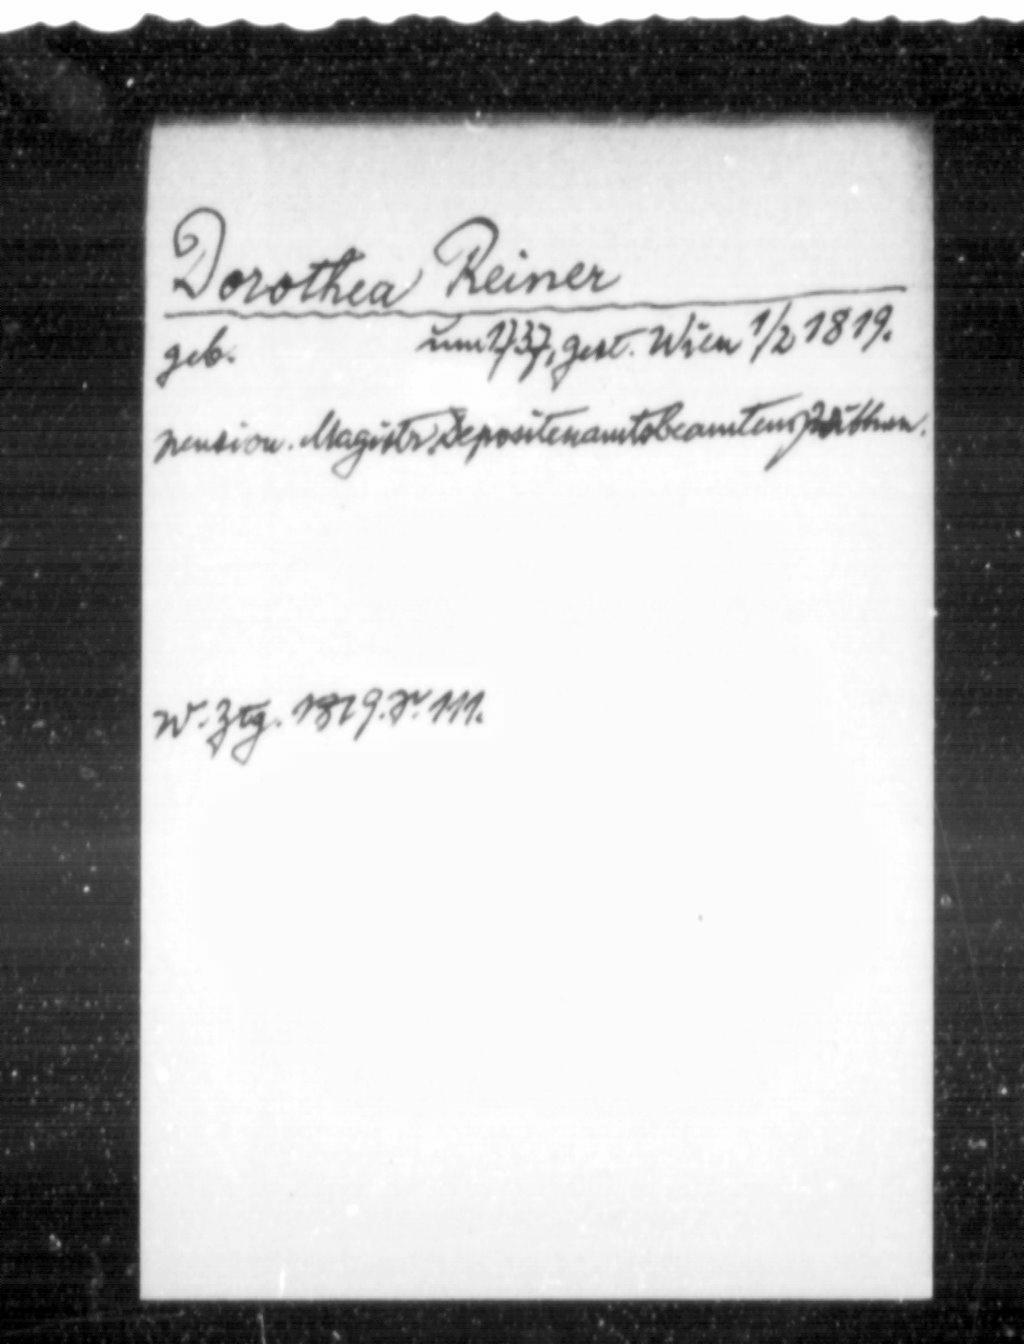 Dorothea Reiner
geb. um 1737, gest. Wien 1/2 1819.
pension. Magistr. Depositenamtsbeamtens
W. Ztg. 1819. N. 111.